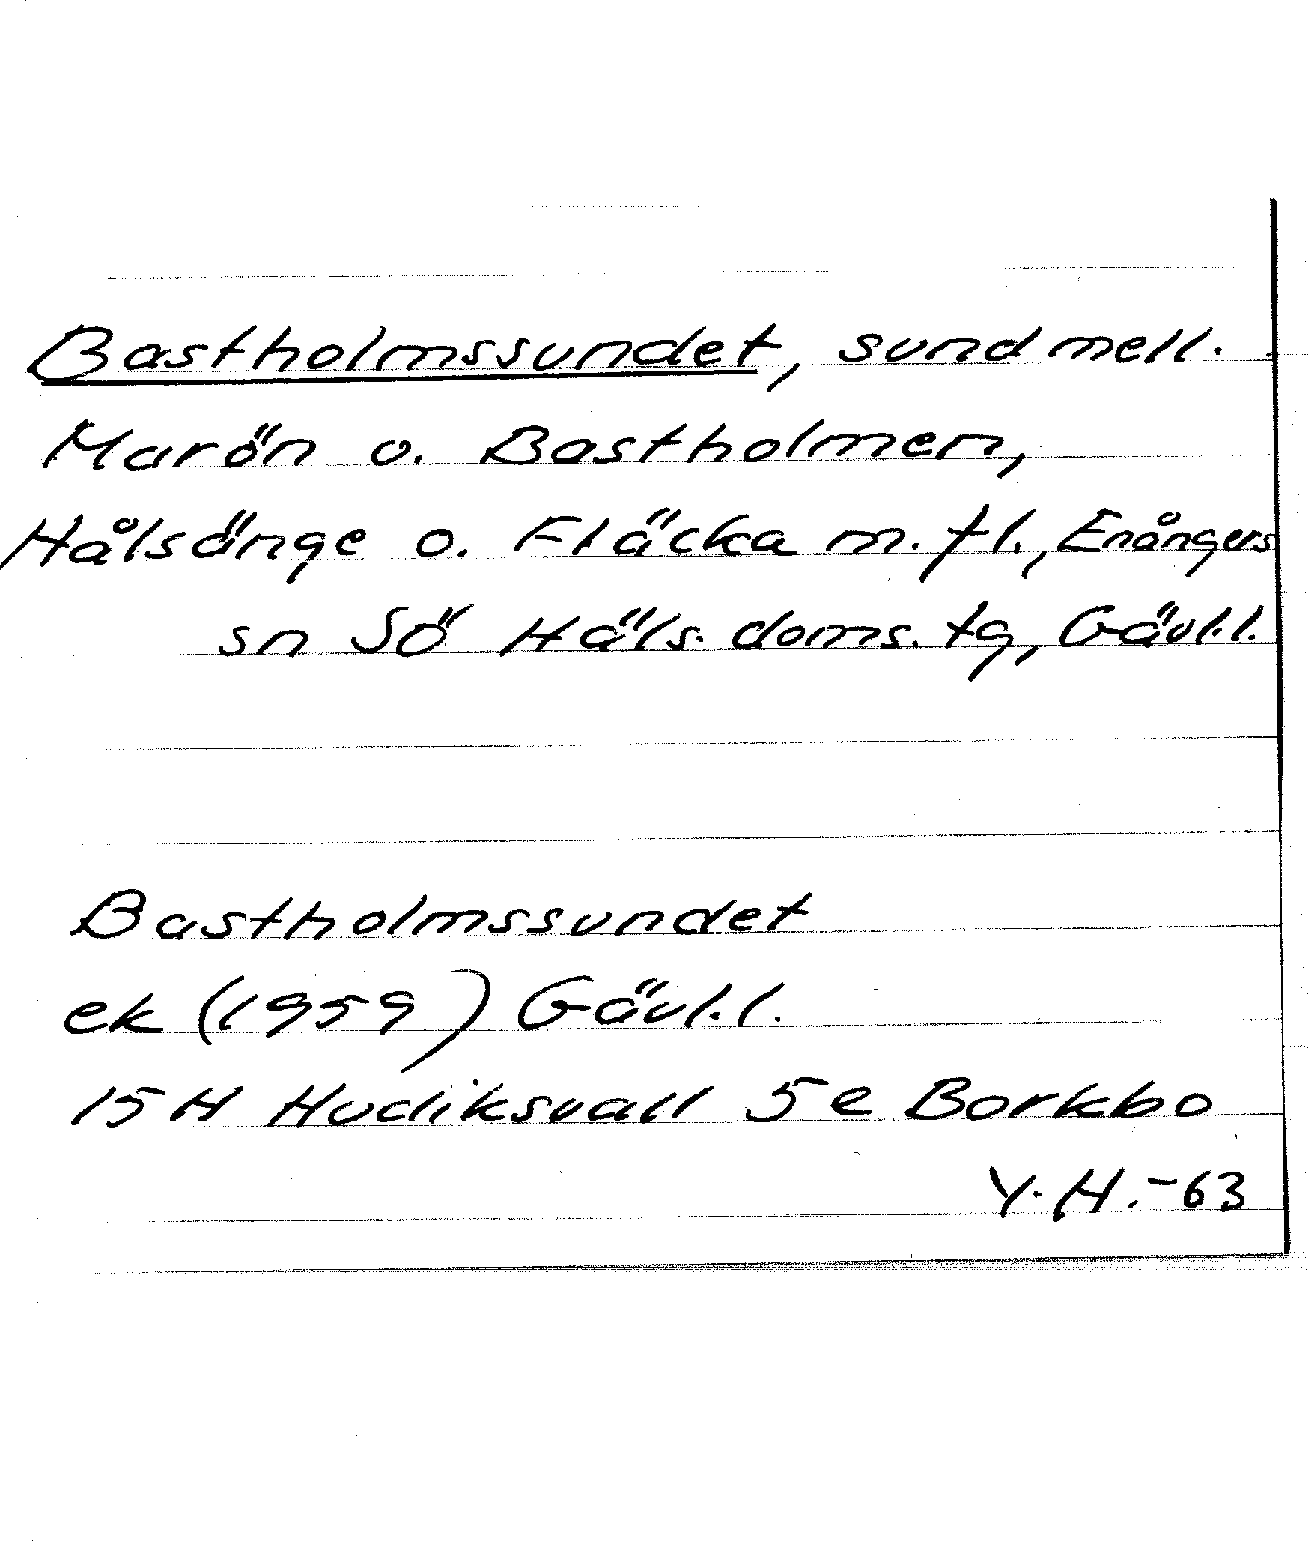 Bastholmssundet, sund mell.
Marön o. Bastholmen,
Hålsänge o. Fläcka m. fl., Enångers
sn Sö Häls. doms. tg, Gävl.l.
Bastholmssundet
ek (1959) Gävl.l.
15 H Hudiksvall 5e Borkbo
Y. H. -63